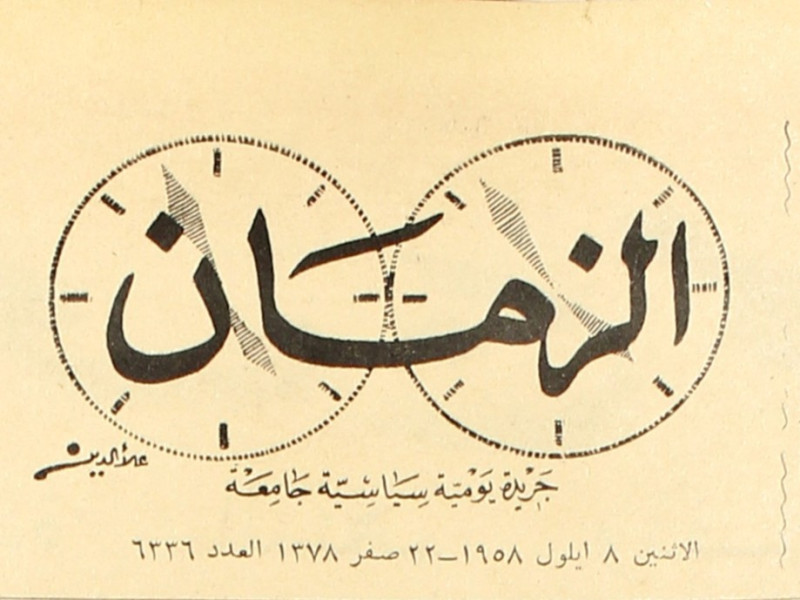 الزمان
علاءالدين
جَرْيدة يَوْميّة سِيَاسْيّة جَامِعَة
الاثنين ٨ ايلول ١٩٥٨–٢٢ صفر ١٣٧٨ العدد ٦٣٣٦